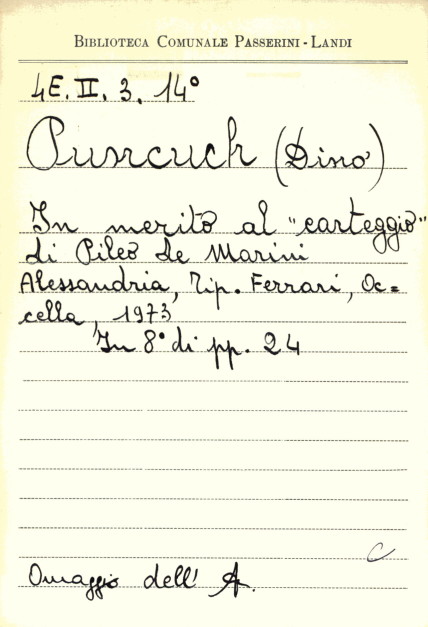 BIBLIOTECA COMUNALE PASSERINI - LANDI
4E. II. 3. 14°
Puncuch (Dino)
In merito al "carteggio"
di Pileo de Marini
Alessandria, Tip. Ferrari, Oc=
cella, 1973
In 8° di pp. 24
C
Omaggio dell' A.